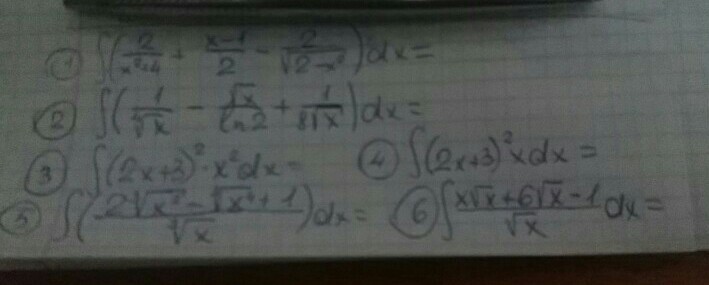 ① ∫(2/(x²+4) + (x-1)/2 - 2/√(2-x²))dx=
② ∫(1/√x - √x/ln2 + 1/(8√x))dx=
③ ∫(2x+3)²·x²dx= ④ ∫(2x+3)²xdx=
⑤ ∫((2√x² - √x⁴ + 1)/√x)dx= ⑥ ∫(x√x+6√x-1)/√x dx=